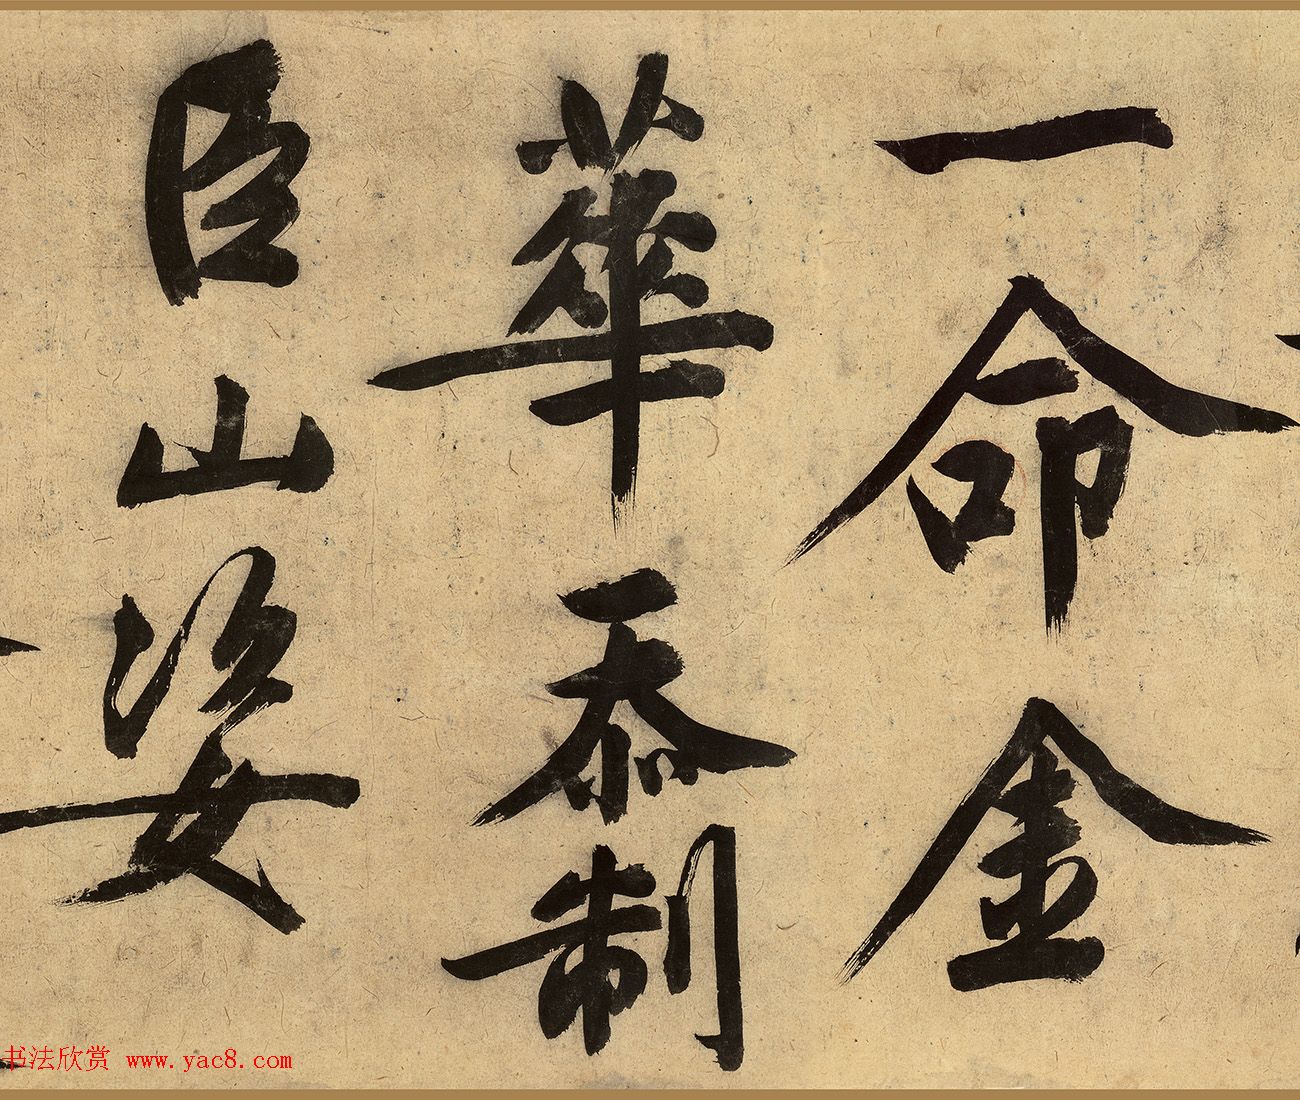 一命金
華忝制
臣山姿
书法欣赏 www.yac8.com